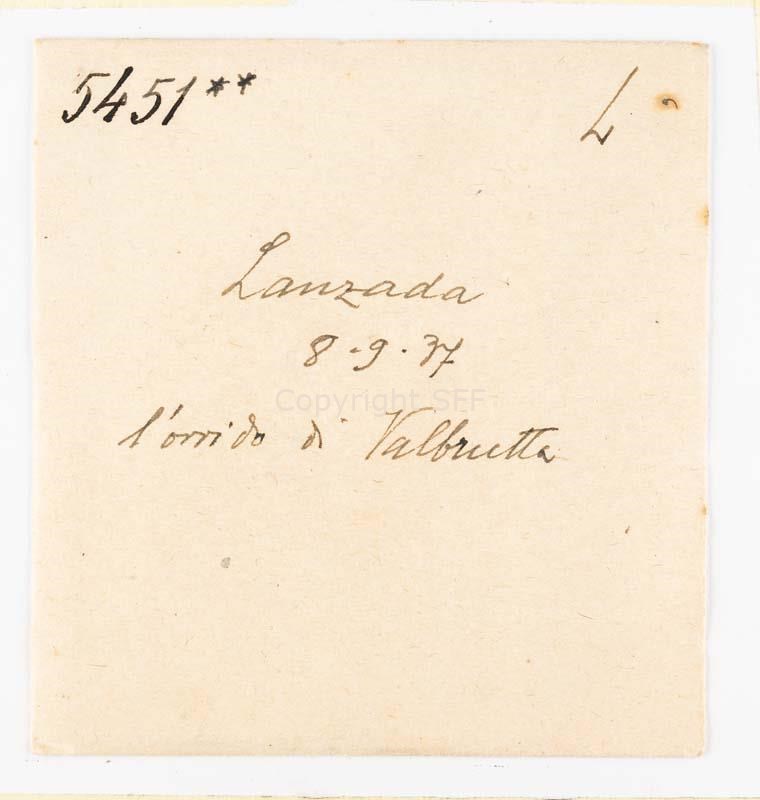 5451** L
Lanzada
8-9-37
Copyright SFF
l'orrido di Valbrutta